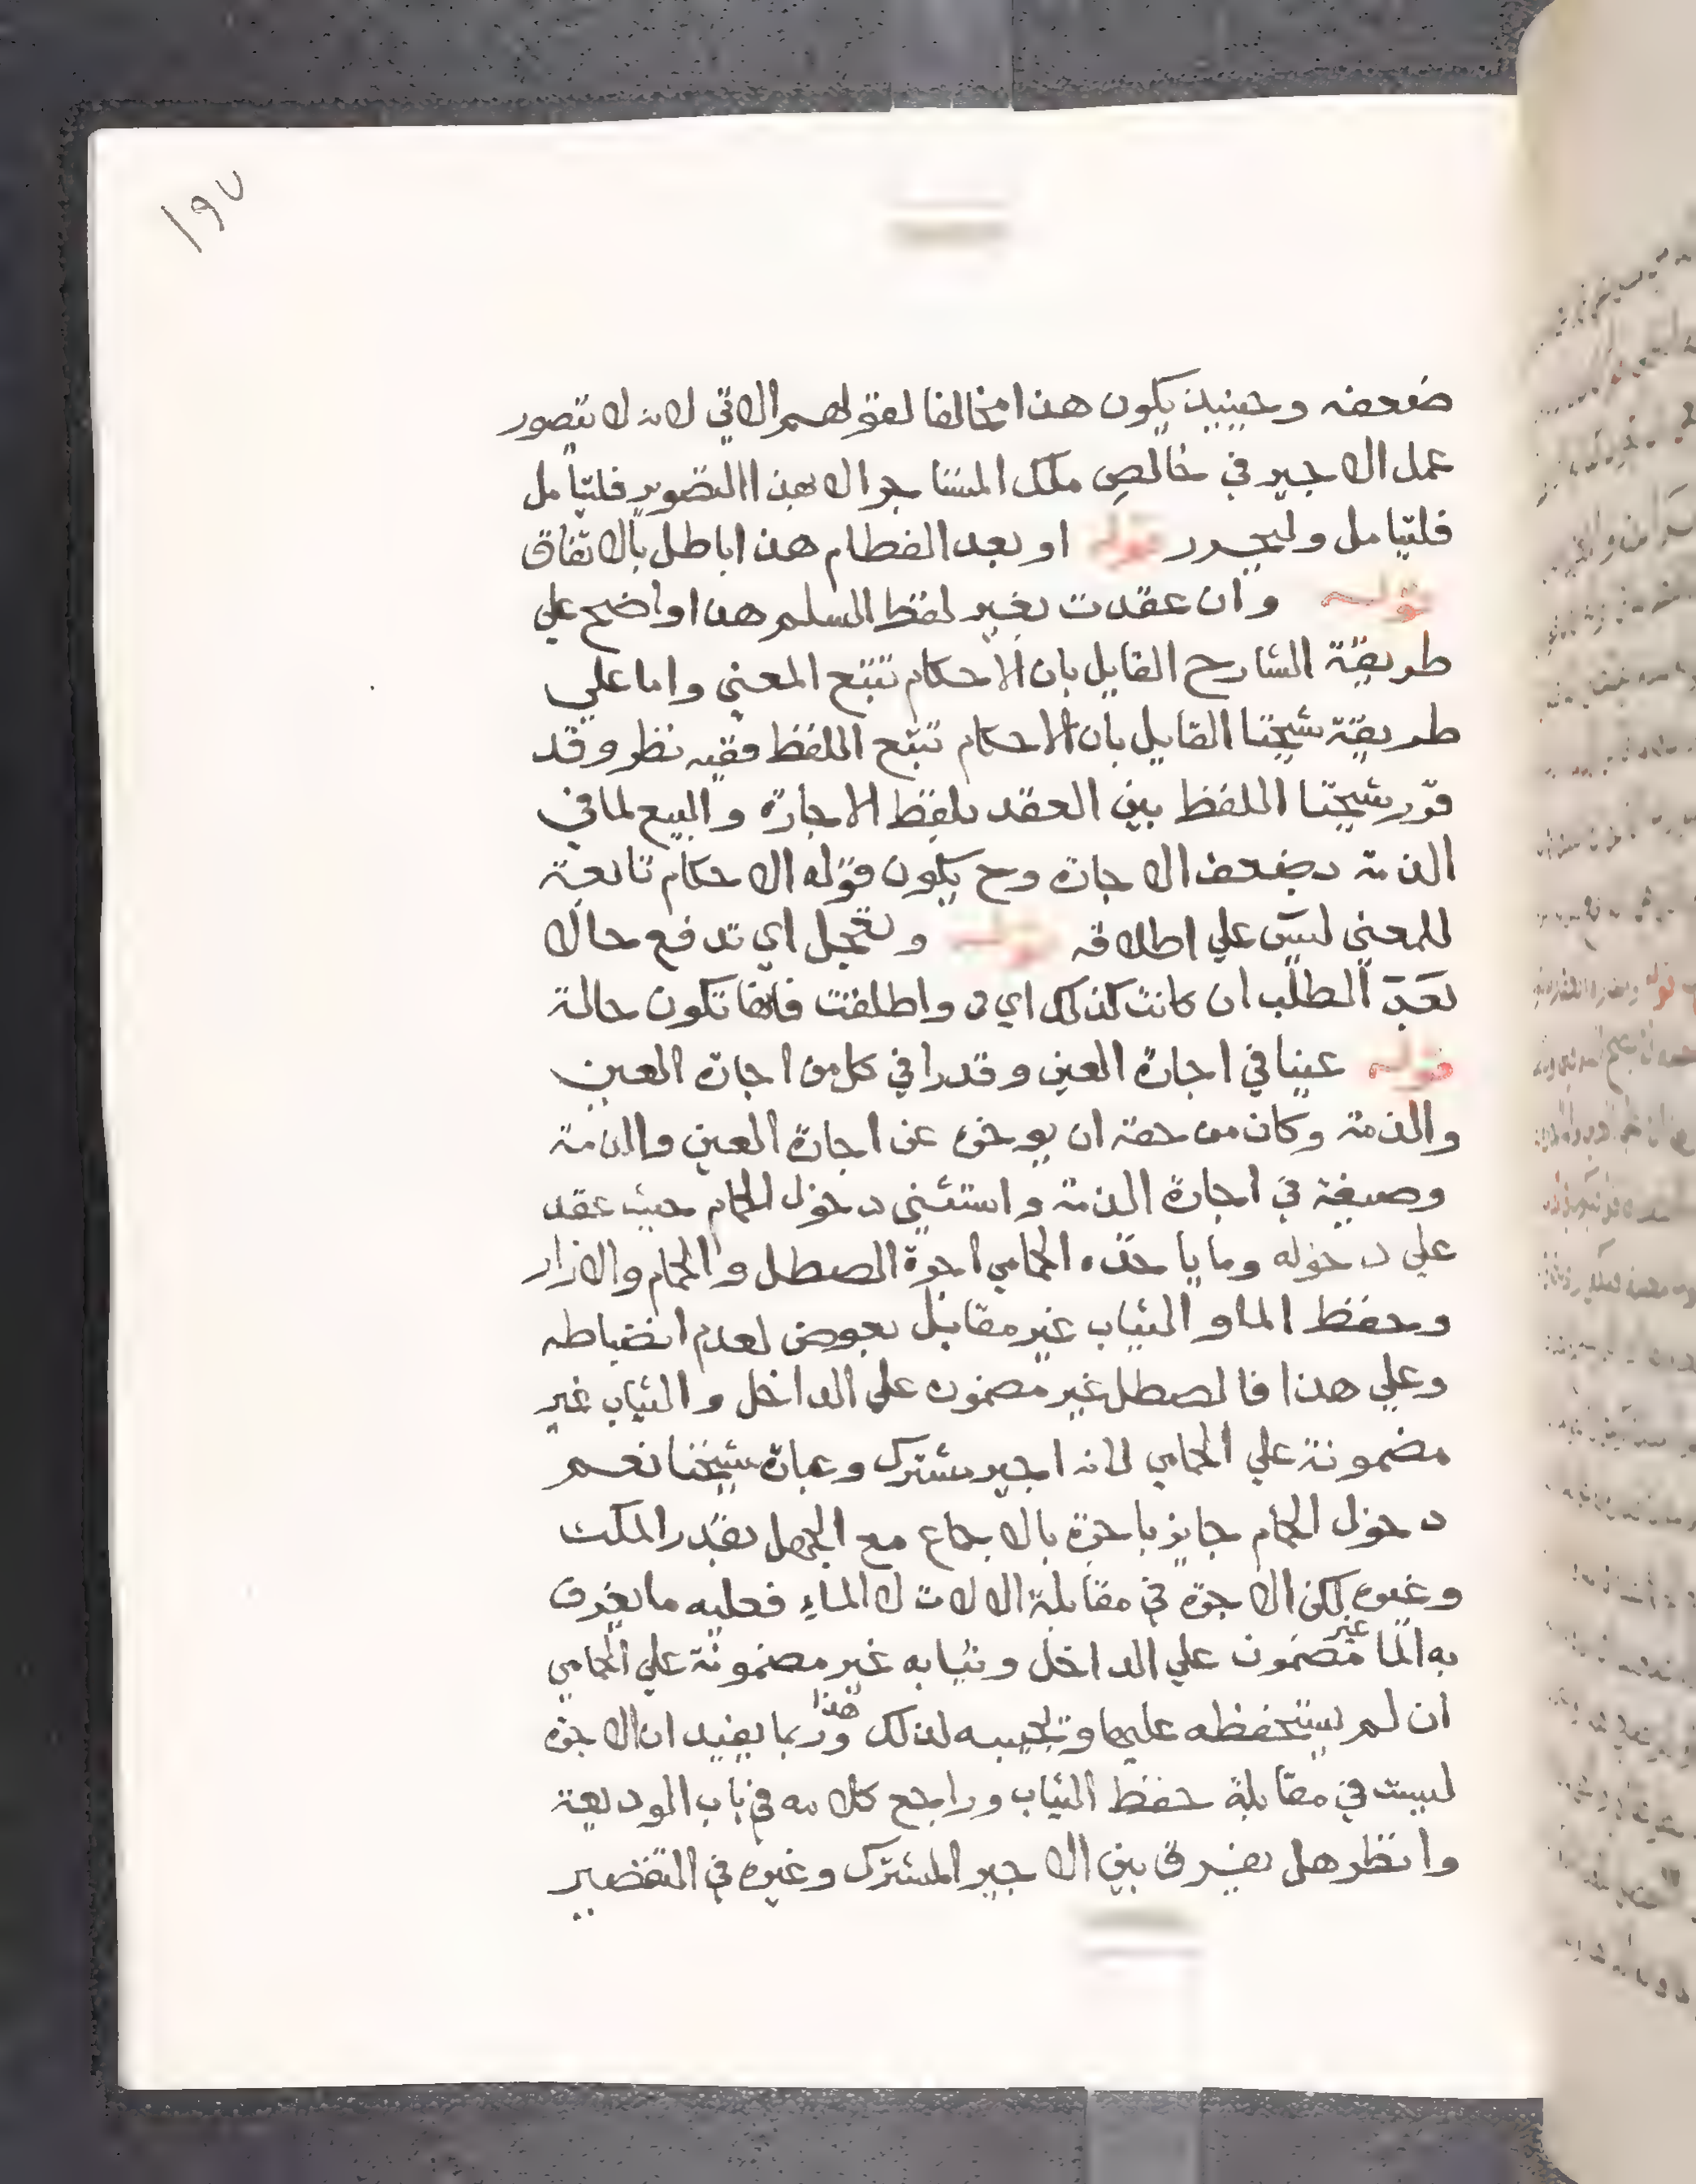 ١٩٧
ضعفه وحينيذ يكون هذا مخالفا لقولهم الاتي لانه لا يتصور
عمل الاجير في خالص ملك المستاجر الا بهذا التصوير فليتامل
فليتامل وليحرر قوله او بعد الفطام هذا باطل بالاتفاق
قوله وان عقدت بغير لفظ السلم هذا واضح علي
طريقة الشارح القايل بان الاحكام تتبع المعني واما علي
طريقة شيخنا القايل بان الاحكام تتبع اللفظ ففيه نظر وقد
قرر شيخنا اللفظ بين العقد بلفظ الاجارة والبيع لما في
الذمة بضعف الاجارة وح يكون قوله الاحكام تابعة
للمعني ليس علي اطلاقه قوله وتعجل اي تدفع حالا
بعد الطلب ان كانت كذلك اي واطلقت فانها تكون حالة
قوله عينا في اجارة العين وقدرا في كل من اجارة العين
والذمة وكان من حقه ان يوخره عن اجارة العين والذمة
وصيغة في اجارة الذمة واستثني دخول الحمام حيث عقد
علي دخوله وما ياخذه الحمامي اجرة الصطل والحمام والازار
وحفظ الما والثياب غير مقابل بعوض لعدم انضباطه
وعلي هذا فالصطل غير مضمون علي الداخل والثياب غير
مضمونة علي الحمامي لانه اجير مشترك وعبارة شيخنا نعم
دخول الحمام جايز باجرة بالاجماع مع الجهل بقدر المكث
وغيره لكن الاجرة في مقابلة الالات لا الماء فعليه ما يغرف
به الما غير مضمون علي الداخل وثيابه غير مضمونة علي الحمامي
ان لم يستحفظه عليها وتجيبه لذلك هذا وربما يفيد ان الاجرة
ليست في مقابلة حفظ الثياب وراجع كلامه في باب الوديعة
وانظر هل يفرق بين الاجير المشترك وغيره في التقصير